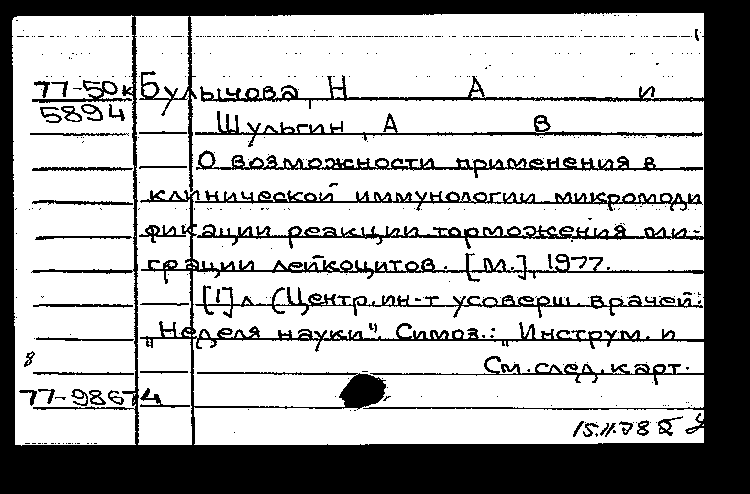 1
77-50к Булычова, Н А и
5894
Шульгин, А В
О возможности применения в
клинической иммунологии микромоди
фикации реакции торможения ми-
грации лейкоцитов. [М.], 1977.
[1] л. (Центр. ин-т усоверш. врачей.
"Неделя науки". Симоз.: "Инструм. и
8
См. след. карт.
77-98674
15.11.78